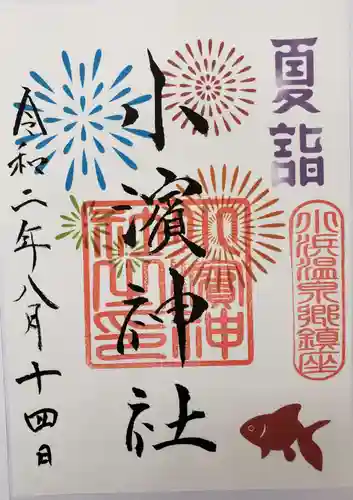 夏詣
小浜温泉郷鎮座
小濱神社
令和二年八月十四日